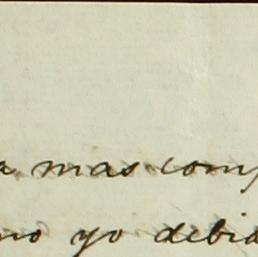 a mas comp
no yo debia